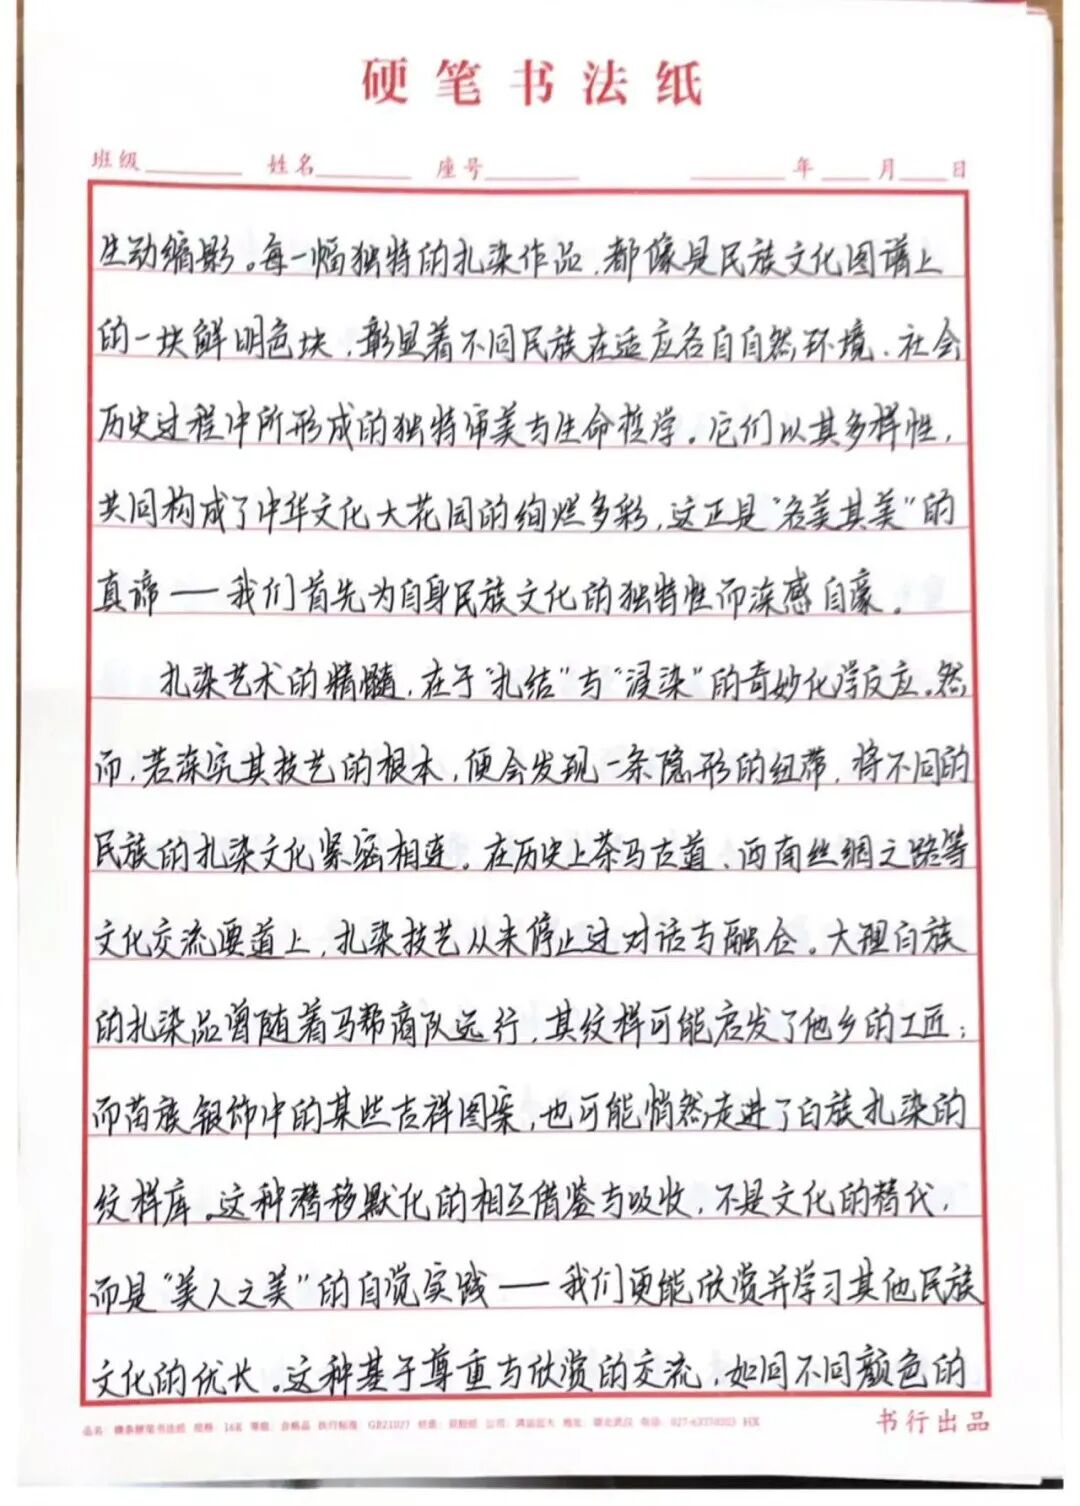 硬笔书法纸
班级 姓名 座号 年 月 日
生动缩影。每一幅独特的扎染作品，都像是民族文化图谱上
的一块鲜明色块，彰显着不同民族在适应各自自然环境、社会
历史过程中所形成的独特审美与生命哲学。它们以其多样性，
共同构成了中华文化大花园的绚烂多彩，这正是“各美其美”的
真谛——我们首先为自身民族文化的独特性而深感自豪。
扎染艺术的精髓，在于“扎结”与“浸染”的奇妙化学反应。然
而，若深究其技艺的根本，便会发现一条隐形的纽带，将不同的
民族的扎染文化紧密相连。在历史上茶马古道、西南丝绸之路等
文化交流要道上，扎染技艺从未停止过对话与融合。大理白族
的扎染品曾随着马帮商队远行，其纹样可能启发了他乡的工匠；
而苗族银饰中的某些吉祥图案，也可能悄然走进了白族扎染的
纹样库。这种潜移默化的相互借鉴与吸收，不是文化的替代，
而是“美人之美”的自觉实践——我们更能欣赏并学习其他民族
文化的优长。这种基于尊重与欣赏的交流，如同不同颜色的
品名：横条硬笔书法纸 规格：16K 等级：合格品 执行标准 GB21027 材质：双胶纸 公司：鸿运匠天 地址：湖北武汉 电话：027-63370203 HX
书行出品